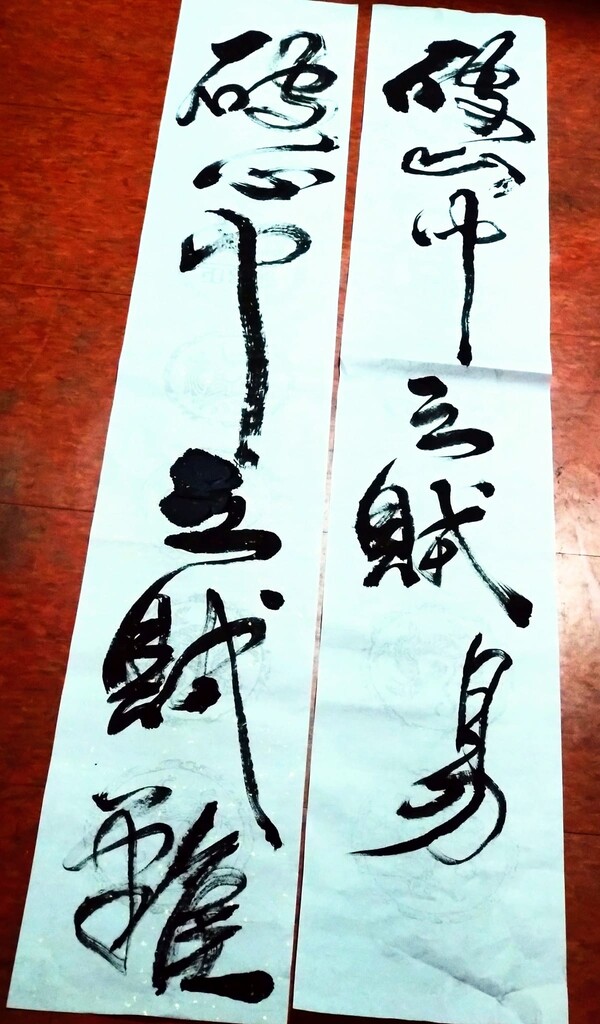 破山中之賊易
破心中之賊難